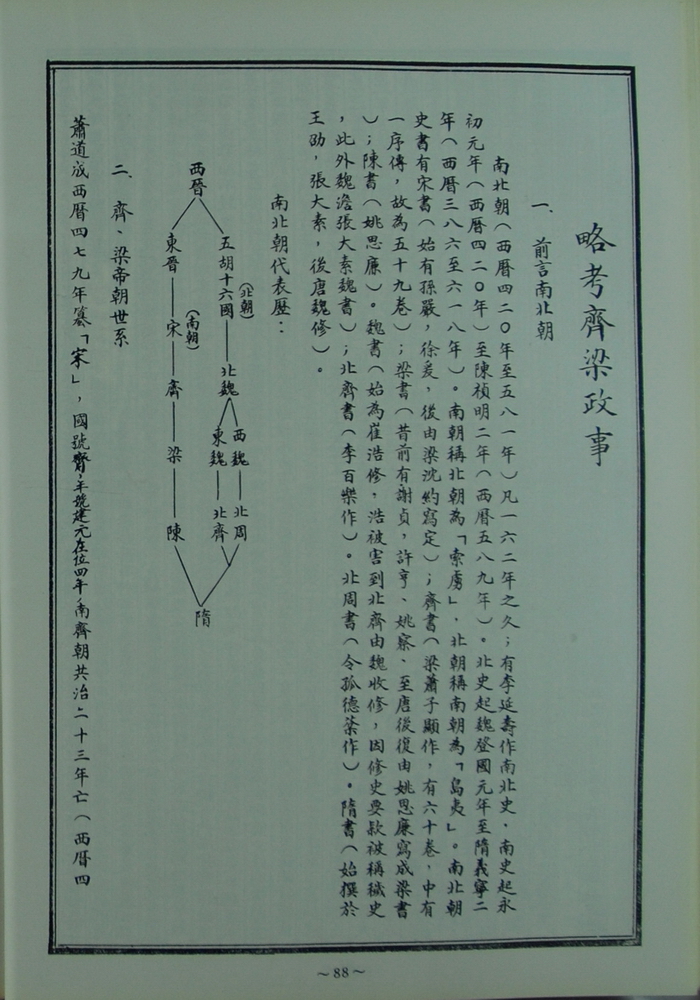 略考齊梁政事
一、前言南北朝
南北朝（西曆四二〇年至五八一年）凡一六二年之久；有李延壽作南北史．南史起永
初元年（西曆四二〇年）至陳禎明二年（西曆五八九年）。北史起魏登國元年至隋義寧二
年（西曆三八六至六一八年）。南朝稱北朝為「索虜」，北朝稱南朝為「島夷」。南北朝
史書有宋書（始有孫嚴，徐爰，後由梁沈約寫定）；齊書（梁蕭子顯作，有六十卷，中有
一序傳，故為五十九卷）；梁書（昔前有謝貞，許亨、姚察、至唐後復由姚思廉寫成梁書
）；陳書（姚思廉）。魏書（始為崔浩修，浩被害到北齊由魏收修，因修史要款被稱穢史
，此外魏澹張大素魏書）；北齊書（李百樂作）。北周書（令孤德棻作）。隋書（始撰於
王劭，張大素，後唐魏修）。
南北朝代表歷：
（北朝）
五胡十六國——北魏
西魏——北周
東魏——北齊
西晉
（南朝）
東晉——宋——齊——梁——陳
隋
二、齊、梁帝朝世系
蕭道成西曆四七九年篡「宋」，國號齊，年號建元在位四年，南齊朝共治二十三年亡（西曆四
~88~